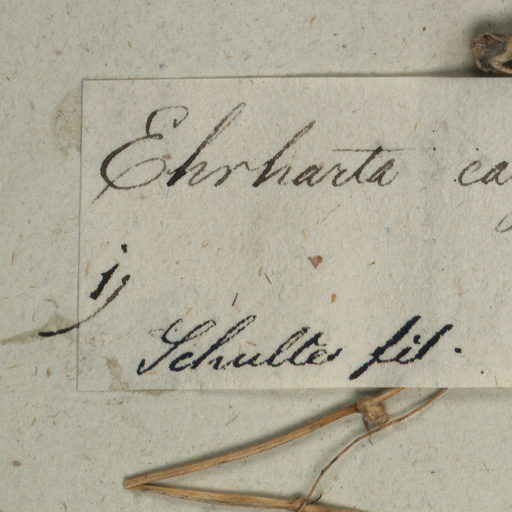 Ehrharta ca
Schultes fil.